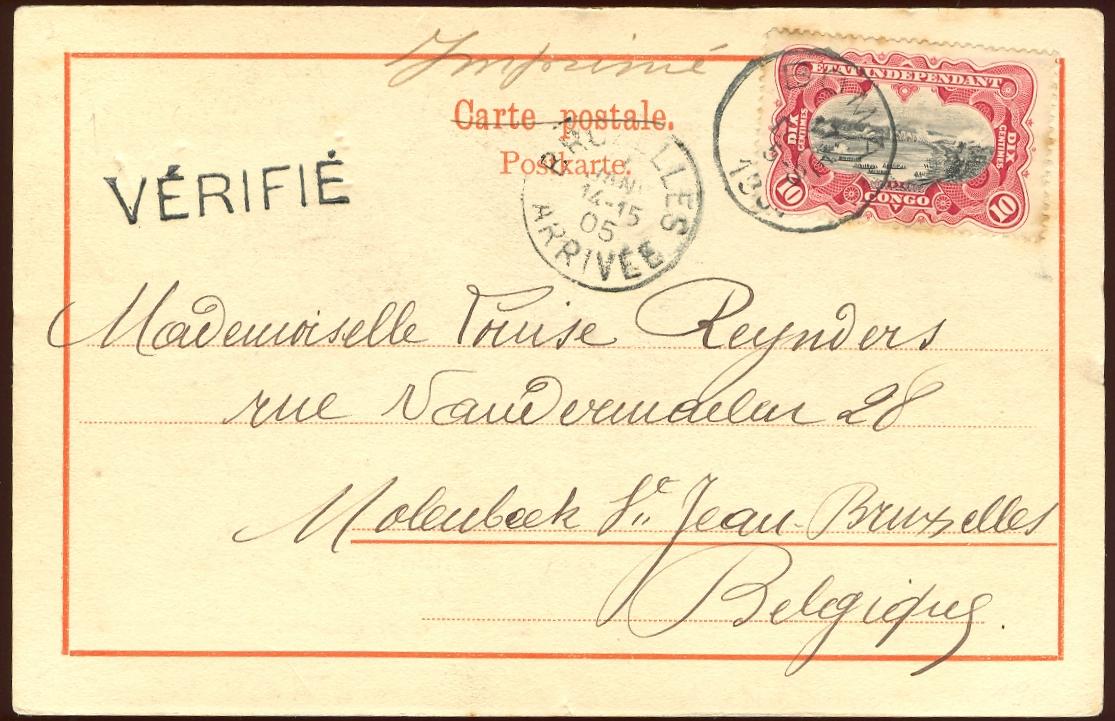 Imprimé
ETAT INDEPENDANT
DIX CENTIMES
DIX CENTIMES
10
CONGO
10
Carte postale.
Postkarte.
BRUXELLES
14-15
05
ARRIVÉE
VÉRIFIÉ
Mademoiselle Louise Reynders
rue Vandermaelen 28
Molenbeek St. Jean-Bruxelles
Belgique.